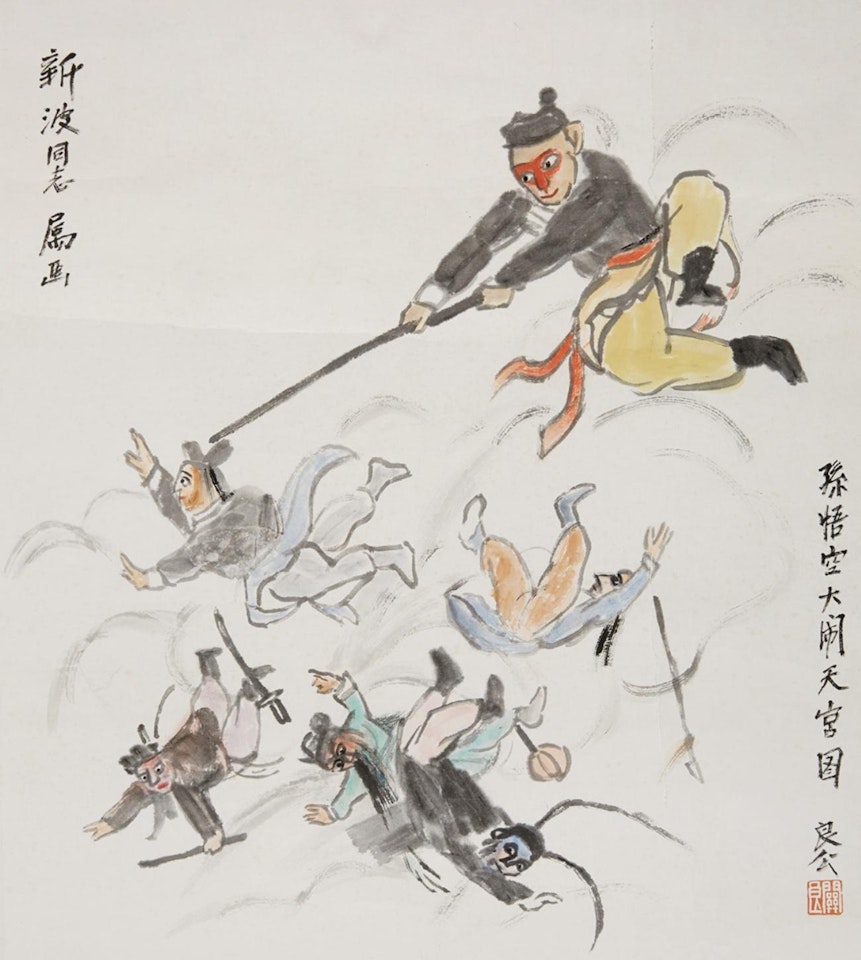 孫悟空大闹天宫图
良公
關良
新波同志属画